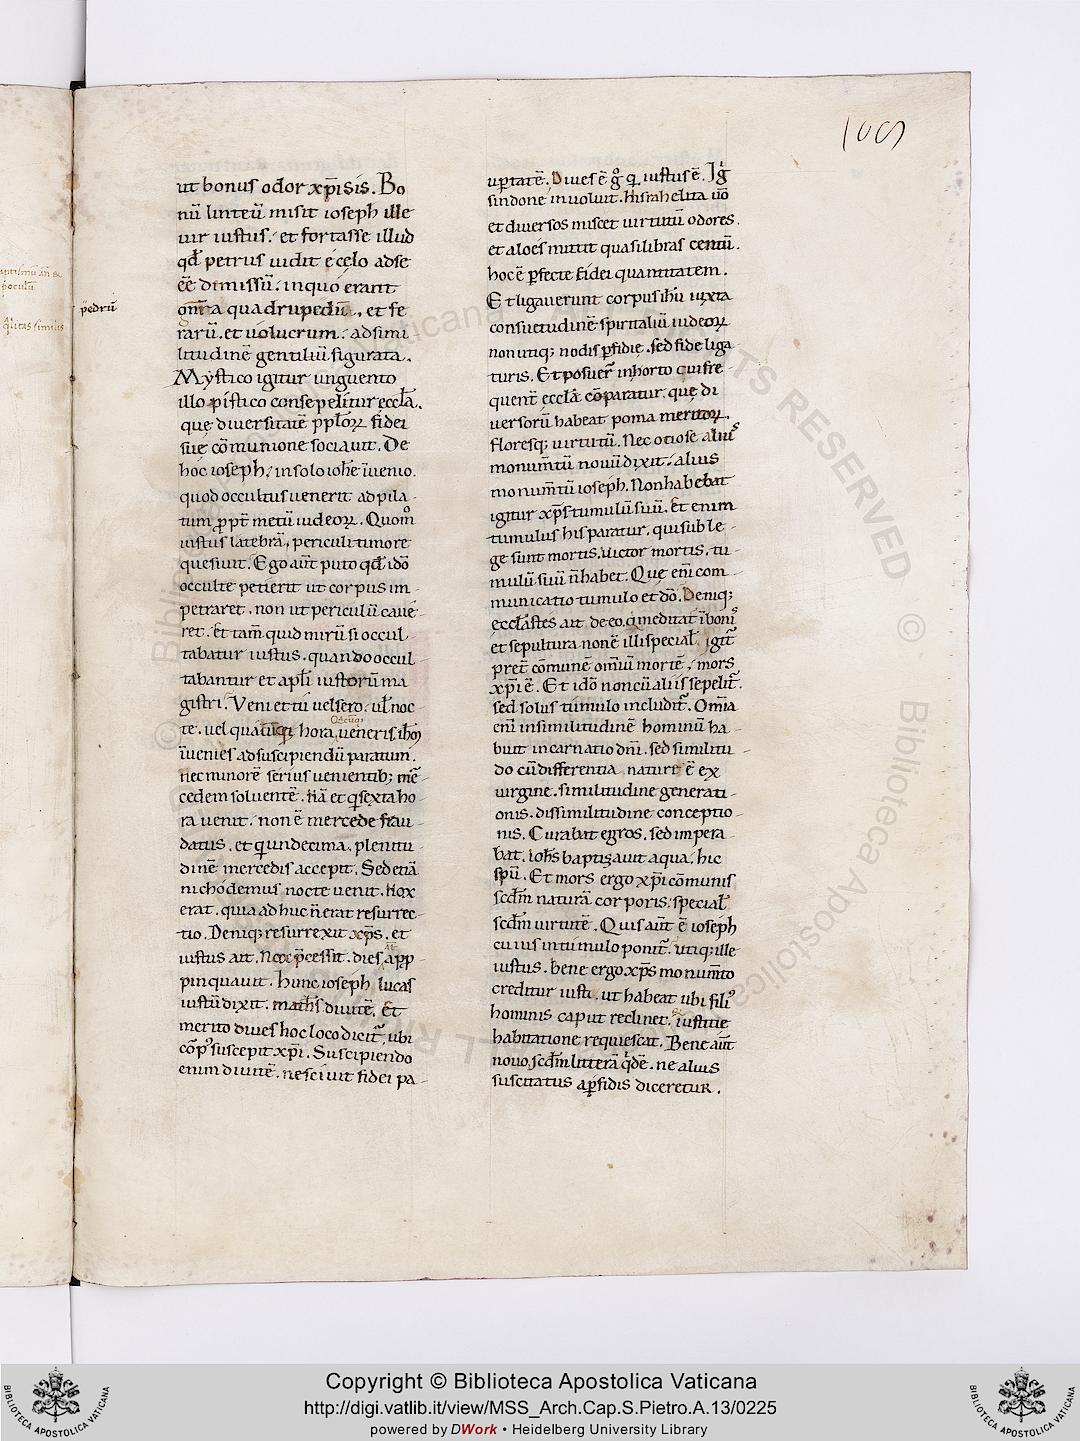 109
ut bonus odor xp̄i sis. Bo
nū linteū misit ioseph ille
uir iustus. et fortasse illud
qd̄ petrus uidit ę celo ad se
ēē dimissū. in quo erant
om̄ia quadrupedū, et fe
rarū, et uolucrum. ad simi
litudinē gentiliū figurata.
Mystico igitur unguento
illo pistico consepelitur eccl̄a,
quę diuersitatē pp̄lorꝝ fidei
suę cōmunione sociauit. De
hoc ioseph, in solo ioh̄e īuenio.
quod occultus uenerit ad pila
tum ꝓpt̄ metū iudeorꝝ. Quom̊
iustus latebrā, periculi timore
quesiuit. Ego aūt puto qd̄ idō
occulte petierit ut corpus im
petraret. non ut periculū caue
ret. Et tam̄ quid mirū si occul
tabatur iustus. quando occul
tabantur et apl̄i iustorū ma
gistri. Veni et tu uel sero. ul̄ noc
te. uel
hora ueneris. ih̄m
īuenies ad suscipiendū paratum.
nec minorē serius uenientibꝫ m̄
cedem soluentē. Nā et q̇ sexta ho
ra uenit. non ē mercede frau
datus. et q̇ undecima, plenitu
dinē mercedis accepit. Sed etiā
nichodemus nocte uenit. Nox
erat. quia adhuc n̄ erat resurrec
tio. Deniqꝫ resurrexit xp̄s. et
iustus ait. Nox p̄cessit. dies app̄
pinquauit. Hunc ioseph lucas
iustū dixit. math̄s diuitē. Et
merito diues hoc loco dicit̄, ubi
cōp᷒ suscepit xp̄i. Suscipiendo
enim diuitē. nesciuit fidei pa
up̄tatē. Diues ē g̊ q̇ iustus ē. Ig̊
sindone inuoluit. Hisrahelita uō
et diuersos miscet uirtutū odores.
et aloes mittit quasi libras centū.
hoc ē ꝑfecte fidei quantitatem.
Et ligauerunt corpus ih̄u iuxta
consuetudinē spiritaliū iudeorꝝ
non utiqꝫ nodis ꝑfidię. sed fide liga
turis. Et posuer̄ in horto qui fre
quent̄ eccl̄ę cōparatur. quę di
uersorū habeat poma meritorꝝ,
floresqꝫ uirtutū. Nec otiose aliī
monum̄tū nouū dixit. alius
monum̄tū ioseph. Non habebat
igitur xp̄s tumulū suū. Et enim
tumulus his paratur. qui sub le
ge sunt mortis. uictor mortis. tu
mulū suū n̄ habet. Quę enī com
municatio tumulo et dō. Deniqꝫ
eccl̄astes ait de eo. q̇ meditat̄ ī bonis
et sepultura non ē illi special̄. Igit̄
pret̄ cōmunē om̄iū mortē, mors
xp̄i ē. Et idō non cū aliis sepelit̄.
sed solus tumulo includit̄. Om̄ia
enī in similitudinē hominū ha
buit incarnatio dn̄i. sed similitu
do cū differentia naturę ē ex
uirgine. similitudine generati
onis. dissimilitudine conceptio
nis. Curabat egros. sed impera
bat. Ioh̄s baptizauit aqua, hic
spū. Et mors ergo xp̄i cōmunis
scd̄m naturā corporis. special̄
scd̄m uirtutē. Quis aūt ē ioseph
cuius in tumulo ponit̄. utiqꝫ ille
iustus. bene ergo xp̄s monum̄to
creditur iusti. ut habeat ubi fili᷒
hominis caput reclinet. et iustitię
habitatione requiescat. Bene aūt
nouo, scd̄m litterā q̇dē. ne alius
suscitatus a ꝑfidis diceretur.
pedrū
Copyright © Biblioteca Apostolica Vaticana
http://digi.vatlib.it/view/MSS_Arch.Cap.S.Pietro.A.13/0225
powered by DWork • Heidelberg University Library
BIBLIOTECA APOSTOLICA VATICANA
BIBLIOTECA APOSTOLICA VATICANA